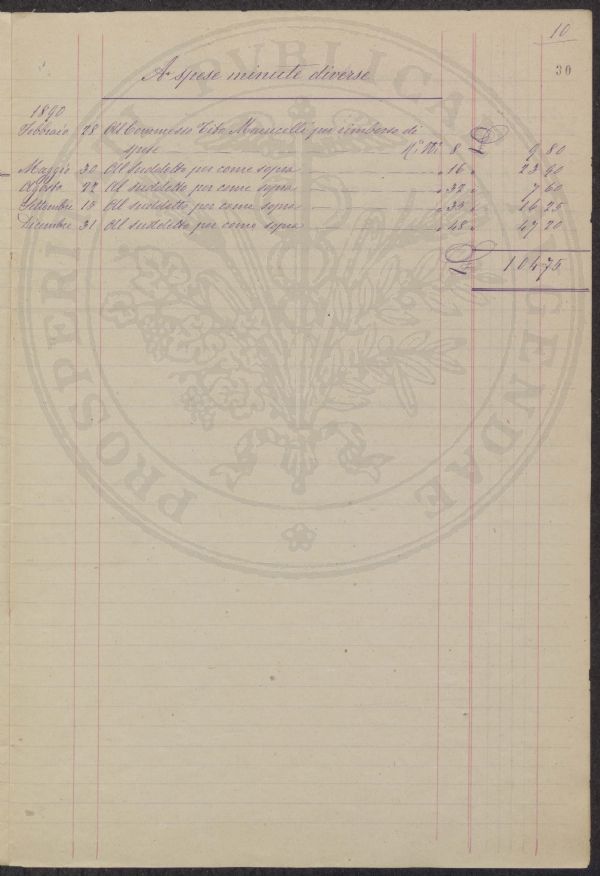 10
30
A spese minute diverse
1890
Febbraio 28 Al Commesso Tito Marucelli per rimborso di
spese 8 £ 9 80
Maggio 30 Al suddetto per come sopra " 16 " 23 90
Agosto 22 Al suddetto per come sopra " 32 " 7 60
Settembre 15 Al suddetto per come sopra " 35 " 16 25
Dicembre 31 Al suddetto per come sopra " 48 " 47 20
£ 104 75
PROSPERITATI PUBLICAE AUGENDAE